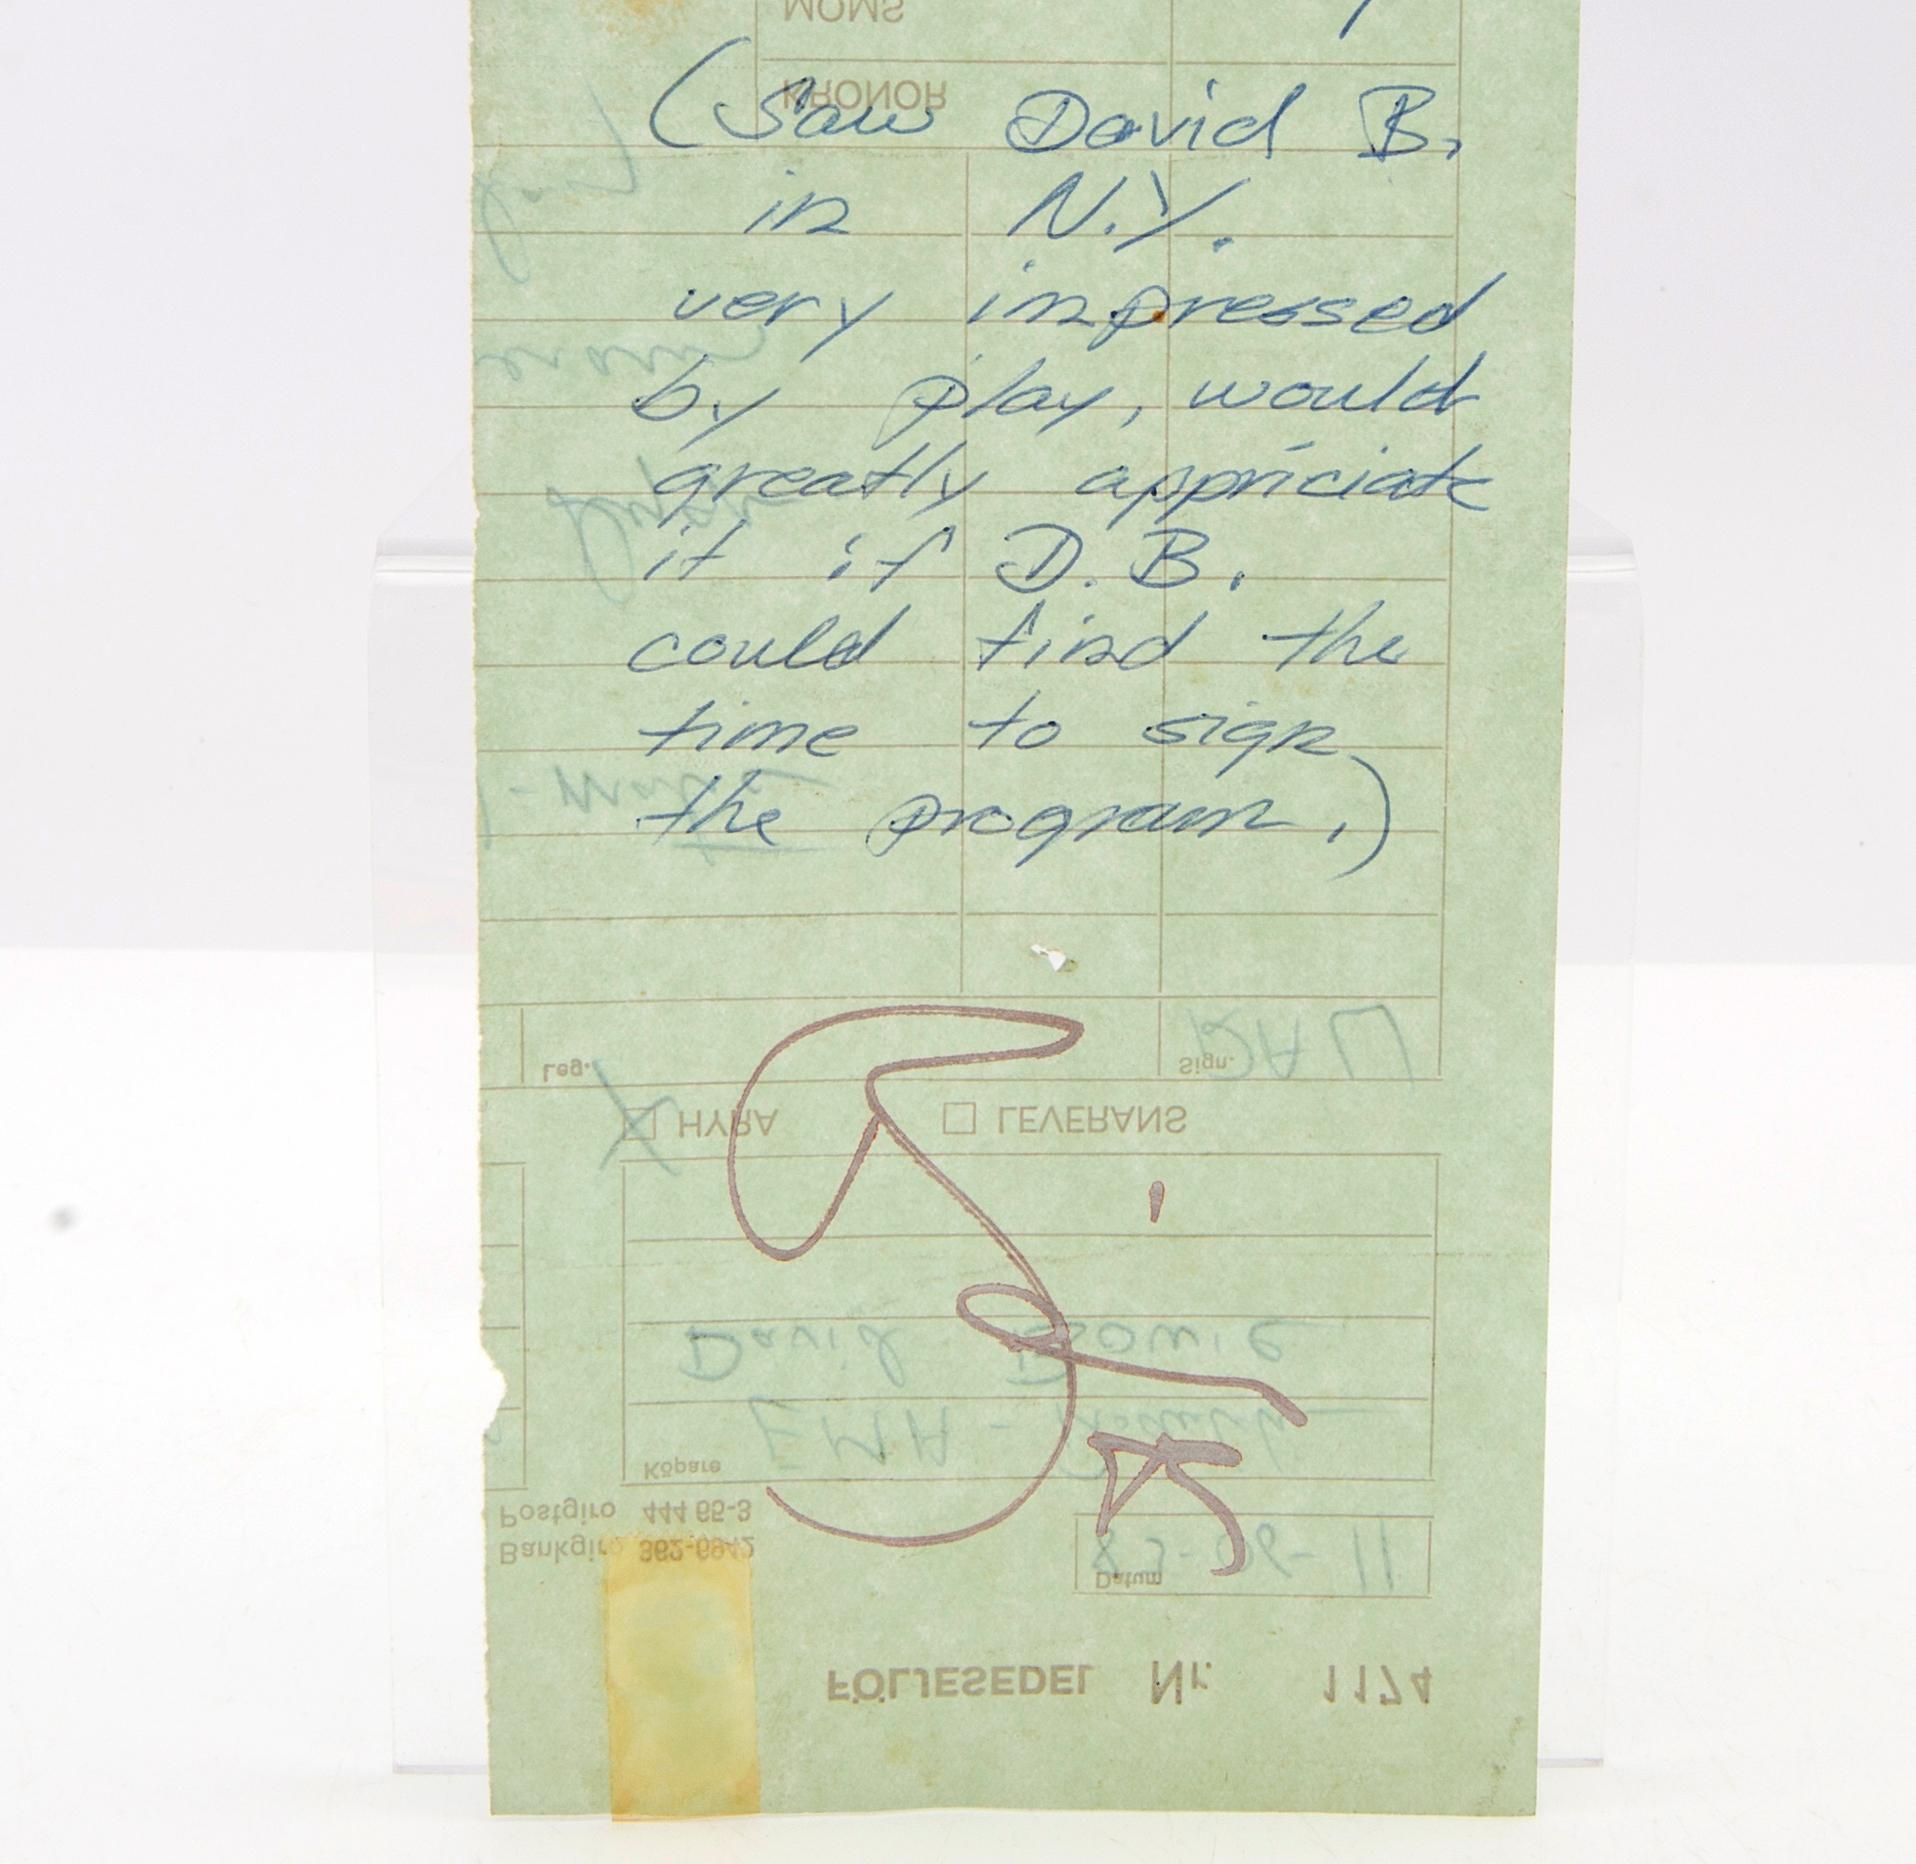 MOMS
KRONOR
(Saw David B.
in N.Y.
very impressed
by play, would
greatly appriciate
it if D.B.
could find the
time to sign
the program.)
Leg.
Sign. RAU
HYRA LEVERANS
David Bowie
EMA -
Köpare
Postgiro 444 65-3
Bankgiro 362-6942
83-06-11
Datum
FÖLJESEDEL Nr. 1174